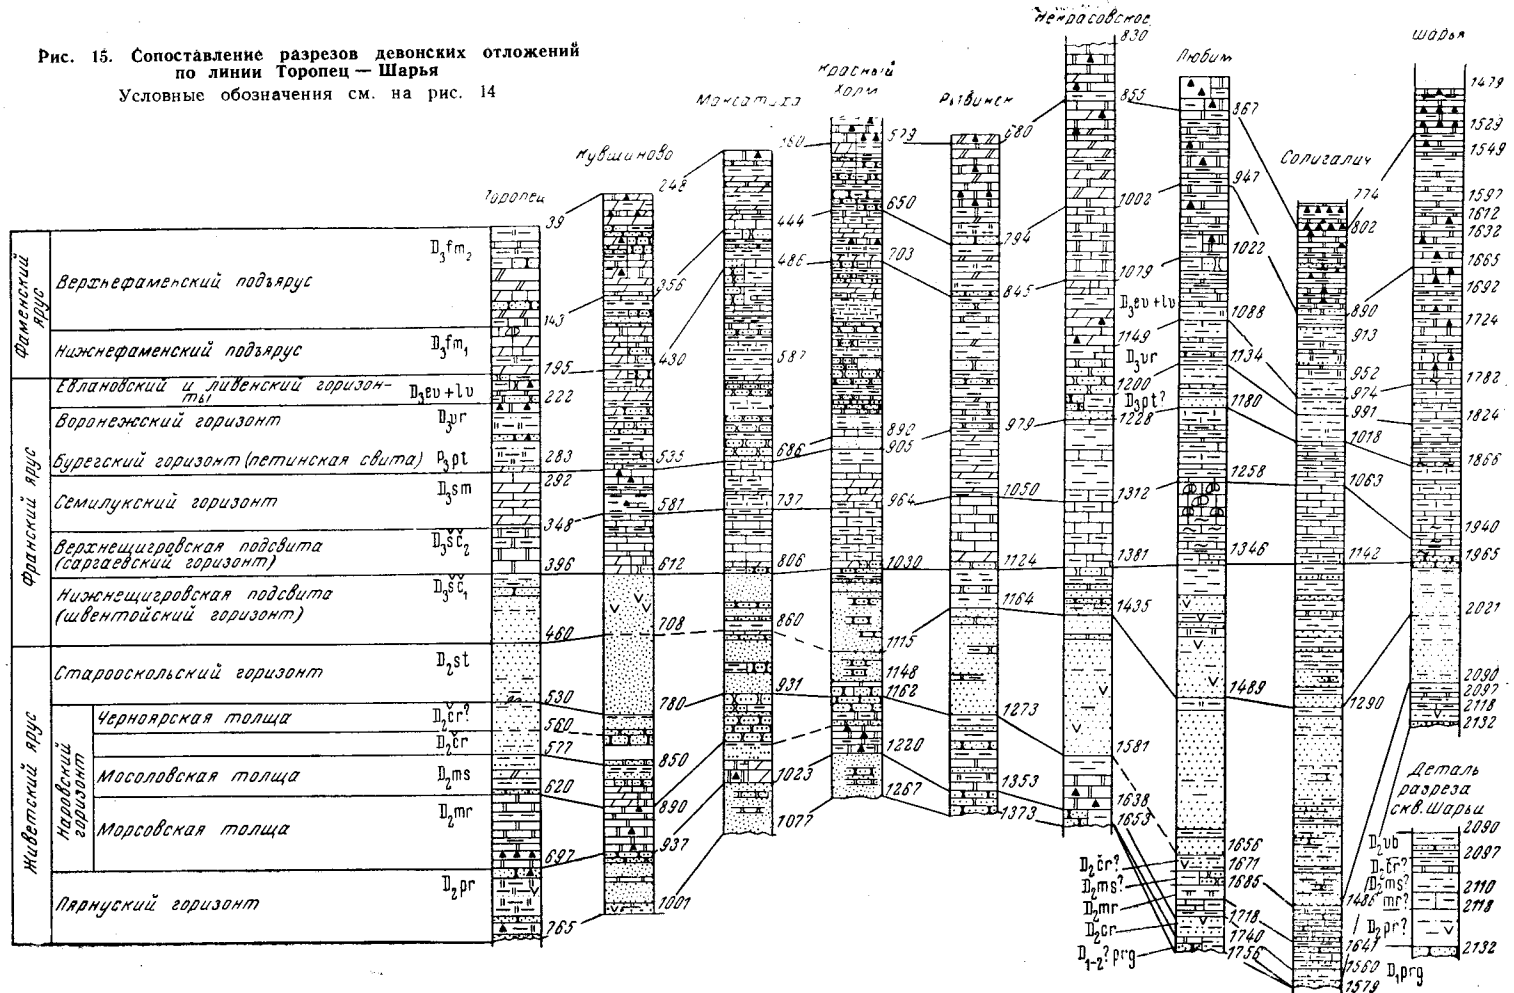 Рис. 15. Сопоставление разрезов девонских отложений
по линии Торопец — Шарья
Условные обозначения см. на рис. 14
Фаменский ярус
Верхнефаменский подъярус D₃fm₂
Нижнефаменский подъярус D₃fm₁
Франский ярус
Евлановский и ливенский горизон-
ты D₃ev+lv
Воронежский горизонт D₃vr
Бурегский горизонт (петинская свита) D₃pt
Семилукский горизонт D₃sm
Верхнещигровская подсвита
(саргаевский горизонт) D₃šč₂
Нижнещигровская подсвита
(швентойский горизонт) D₃šč₁
Живетский ярус
Старооскольский горизонт D₂st
Наровский горизонт
Черноярская толща D₂čr?
D₂čr
Мосоловская толща D₂ms
Морсовская толща D₂mr
Пярнуский горизонт D₂pr
Торопец
39
143
195
222
283
292
348
396
460
530
560
577
620
697
765
Кувшиново
248
356
430
535
581
612
708
780
850
890
937
1001
Максатиха
380
444
486
587
686
737
806
860
931
1023
1077
Красный
Холм
579
650
703
890
905
964
1030
1115
1148
1162
1220
1267
Рыбинск
680
794
845
979
1050
1124
1164
1273
1353
1373
Некрасовское
830
855
1002
1079
D₃ev+lv
1149
D₃vr
1200
D₃pt?
1228
1312
1381
1435
1581
1638
1653
Любим
867
947
1022
1088
1134
1180
1258
1346
1489
1656
D₂čr?
1671
D₂ms?
1685
D₂mr
1718
D₂čr
1740
D₁₋₂?prg
1756
Солигалич
774
802
890
913
952
974
991
1018
1063
1142
1290
1486
1647
1560
1579
D₁prg
Шарья
1479
1529
1549
1597
1612
1632
1665
1692
1724
1782
1824
1866
1940
1965
2021
2090
2097
2118
2132
Деталь
разреза
скв. Шарьи
2090
D₂vb
2097
D₂čr?
D₂ms?
2110
mr?
2118
D₂pr?
2132